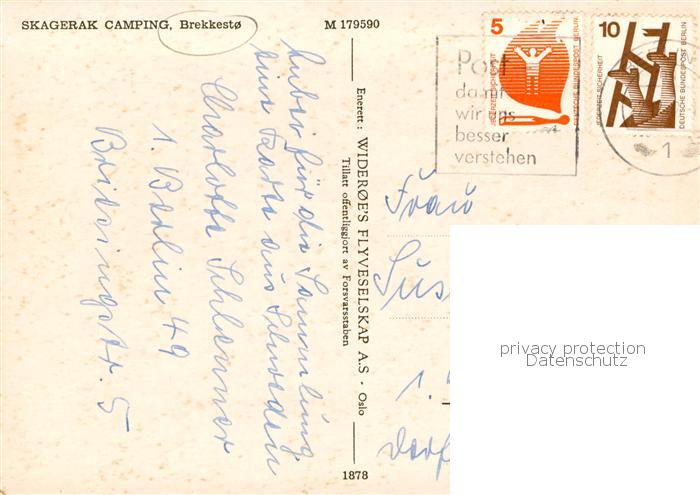 SKAGERAK CAMPING, Brekkestø
M 179590
Enerett: WIDERØE'S FLYVESELSKAP A.S · Oslo
Tillatt offentliggjort av Forsvarsstaben
1878
5
JEDERZEIT SICHERHEIT
DEUTSCHE BUNDESPOST BERLIN
10
JEDERZEIT SICHERHEIT
DEUTSCHE BUNDESPOST BERLIN
Post
damit
wir uns
besser
verstehen
1
für die Sammlung
eine Karte aus Schweden
Charlotte
1. Berlin 49
5
Frau
Sus
1.
Dorf
privacy protection
Datenschutz